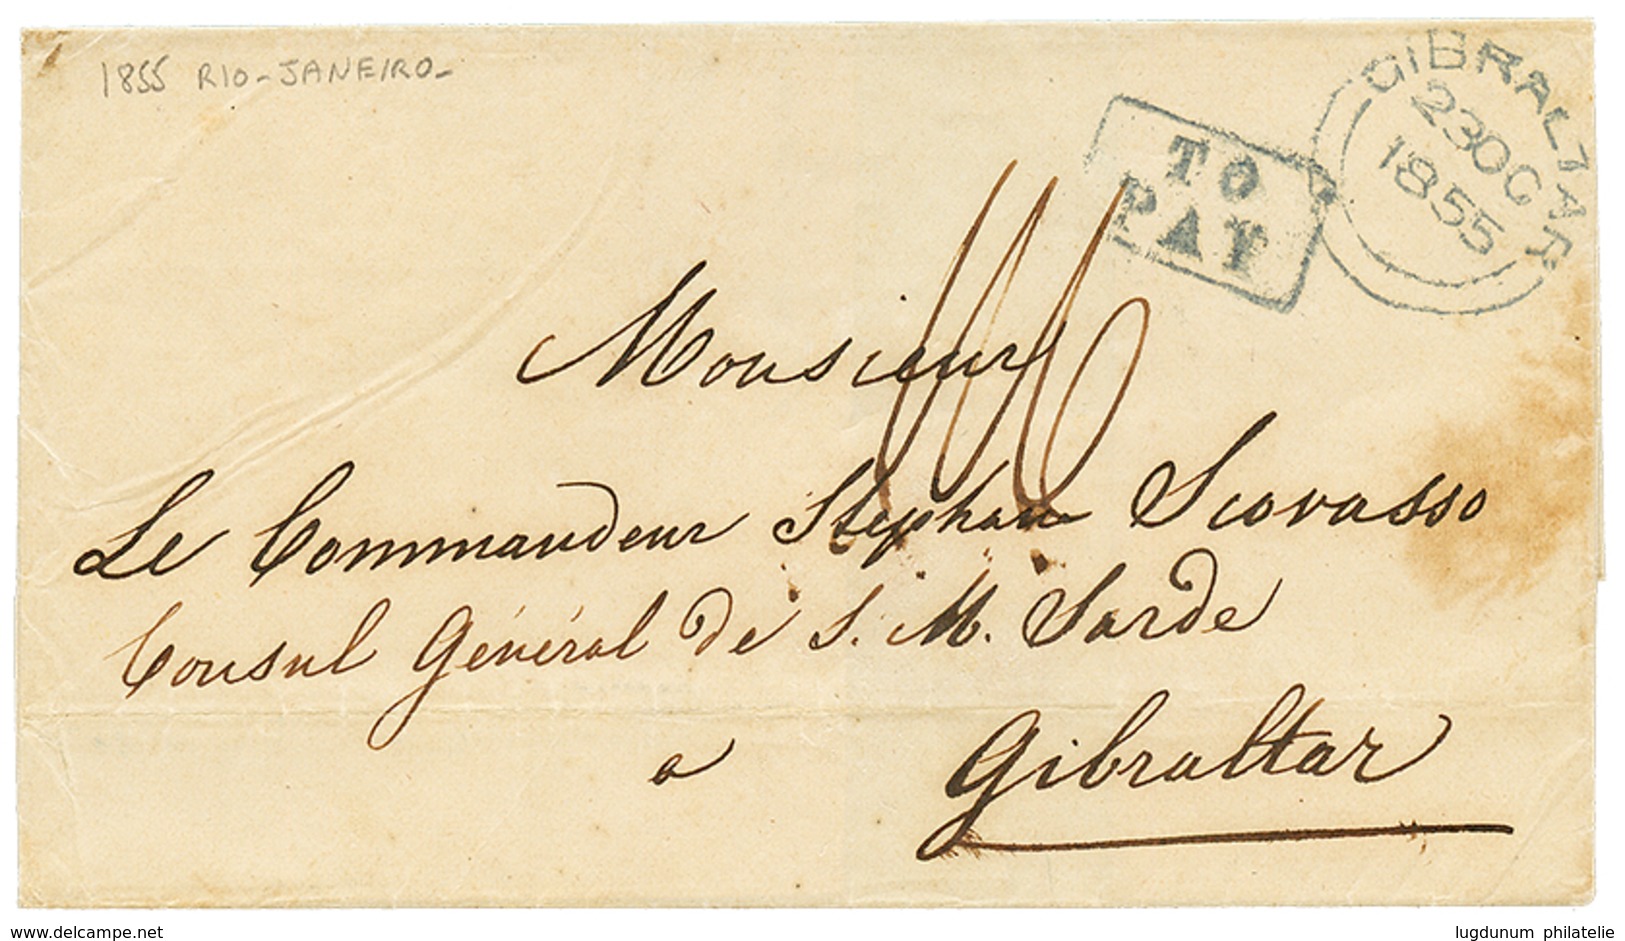 1855 RIO-JANEIRO-
GIBRALTAR
23 OC
1855
TO
PAY
Monsieur
Le Commandeur Stephan Scovasso
Consul Général de S. M. Sarde
a
Gibraltar
delcampe.net
lugdunum philatelie